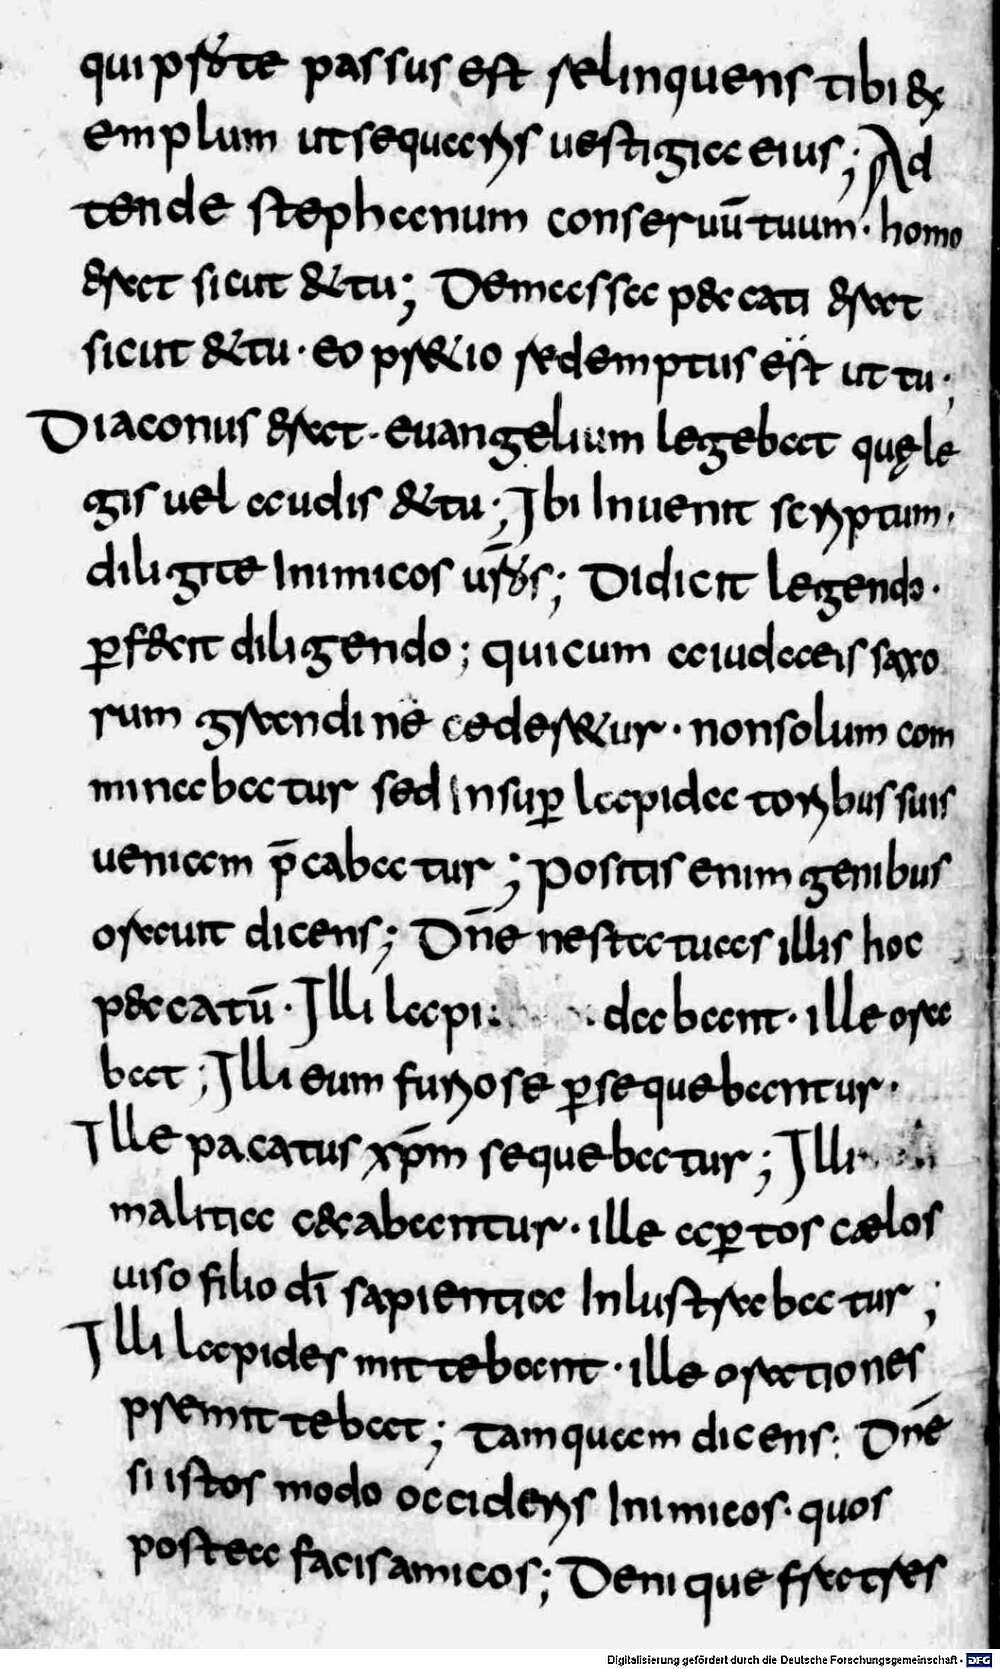 qui pro te passus est relinquens tibi ex
emplum ut sequeris uestigia eius; Ad
tende stephanum conseruū tuum· homo
erat sicut &tu; De massa peccati erat
sicut &tu· eo pretio redemptus est ut tu;
Diaconus erat· euangelium legebat quę le
gis uel audis &tu; Ibi Inuenit scriptum·
diligite Inimicos ur̄os; Didicit legendo·
ꝑfecit diligendo; qui cum a iudaeis saxo
rum grandineceder&ur· non solum com
minabatur sed Insuꝑ lapidatoribus suis
ueniam p̄cabatur; Positis enim genibus
orauit dicens; Dn̄e ne statuas illis hoc
peccatū· Illi lapi dabant· ille ora
bat; Illi eum furiose ꝑsequebantur·
Ille pacatus xp̄m sequebatur; Illi
malitia cecabantur· ille aꝑtos cælos
uiso filio dī sapientia Inlustrabatur;
Illi lapides mittebant· ille orationes
premittebat; tamquam dicens: Dn̄e
si istos modo occideris Inimicos· quos
postea facis amicos; Denique fratres
Digitalisierung gefördert durch die Deutsche Forschungsgemeinschaft - DFG